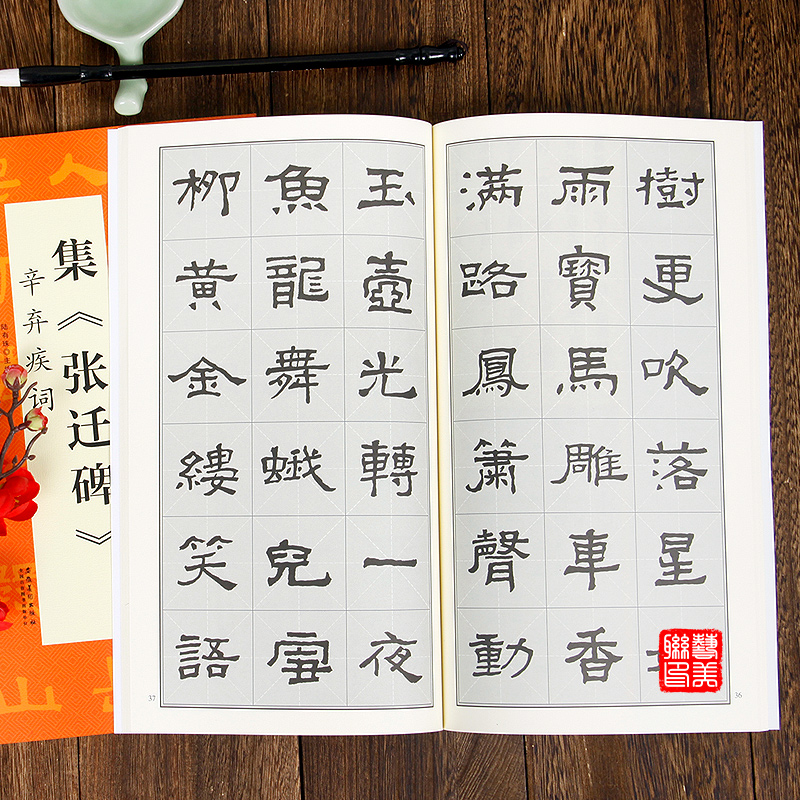 樹更吹落星
雨寶馬雕車香
滿路鳳簫聲動
36
玉壺光轉一夜
魚龍舞蛾兒雪
柳黄金縷笑語
37
集《张迁碑》
辛弃疾词
陆有珠
藝美
聯